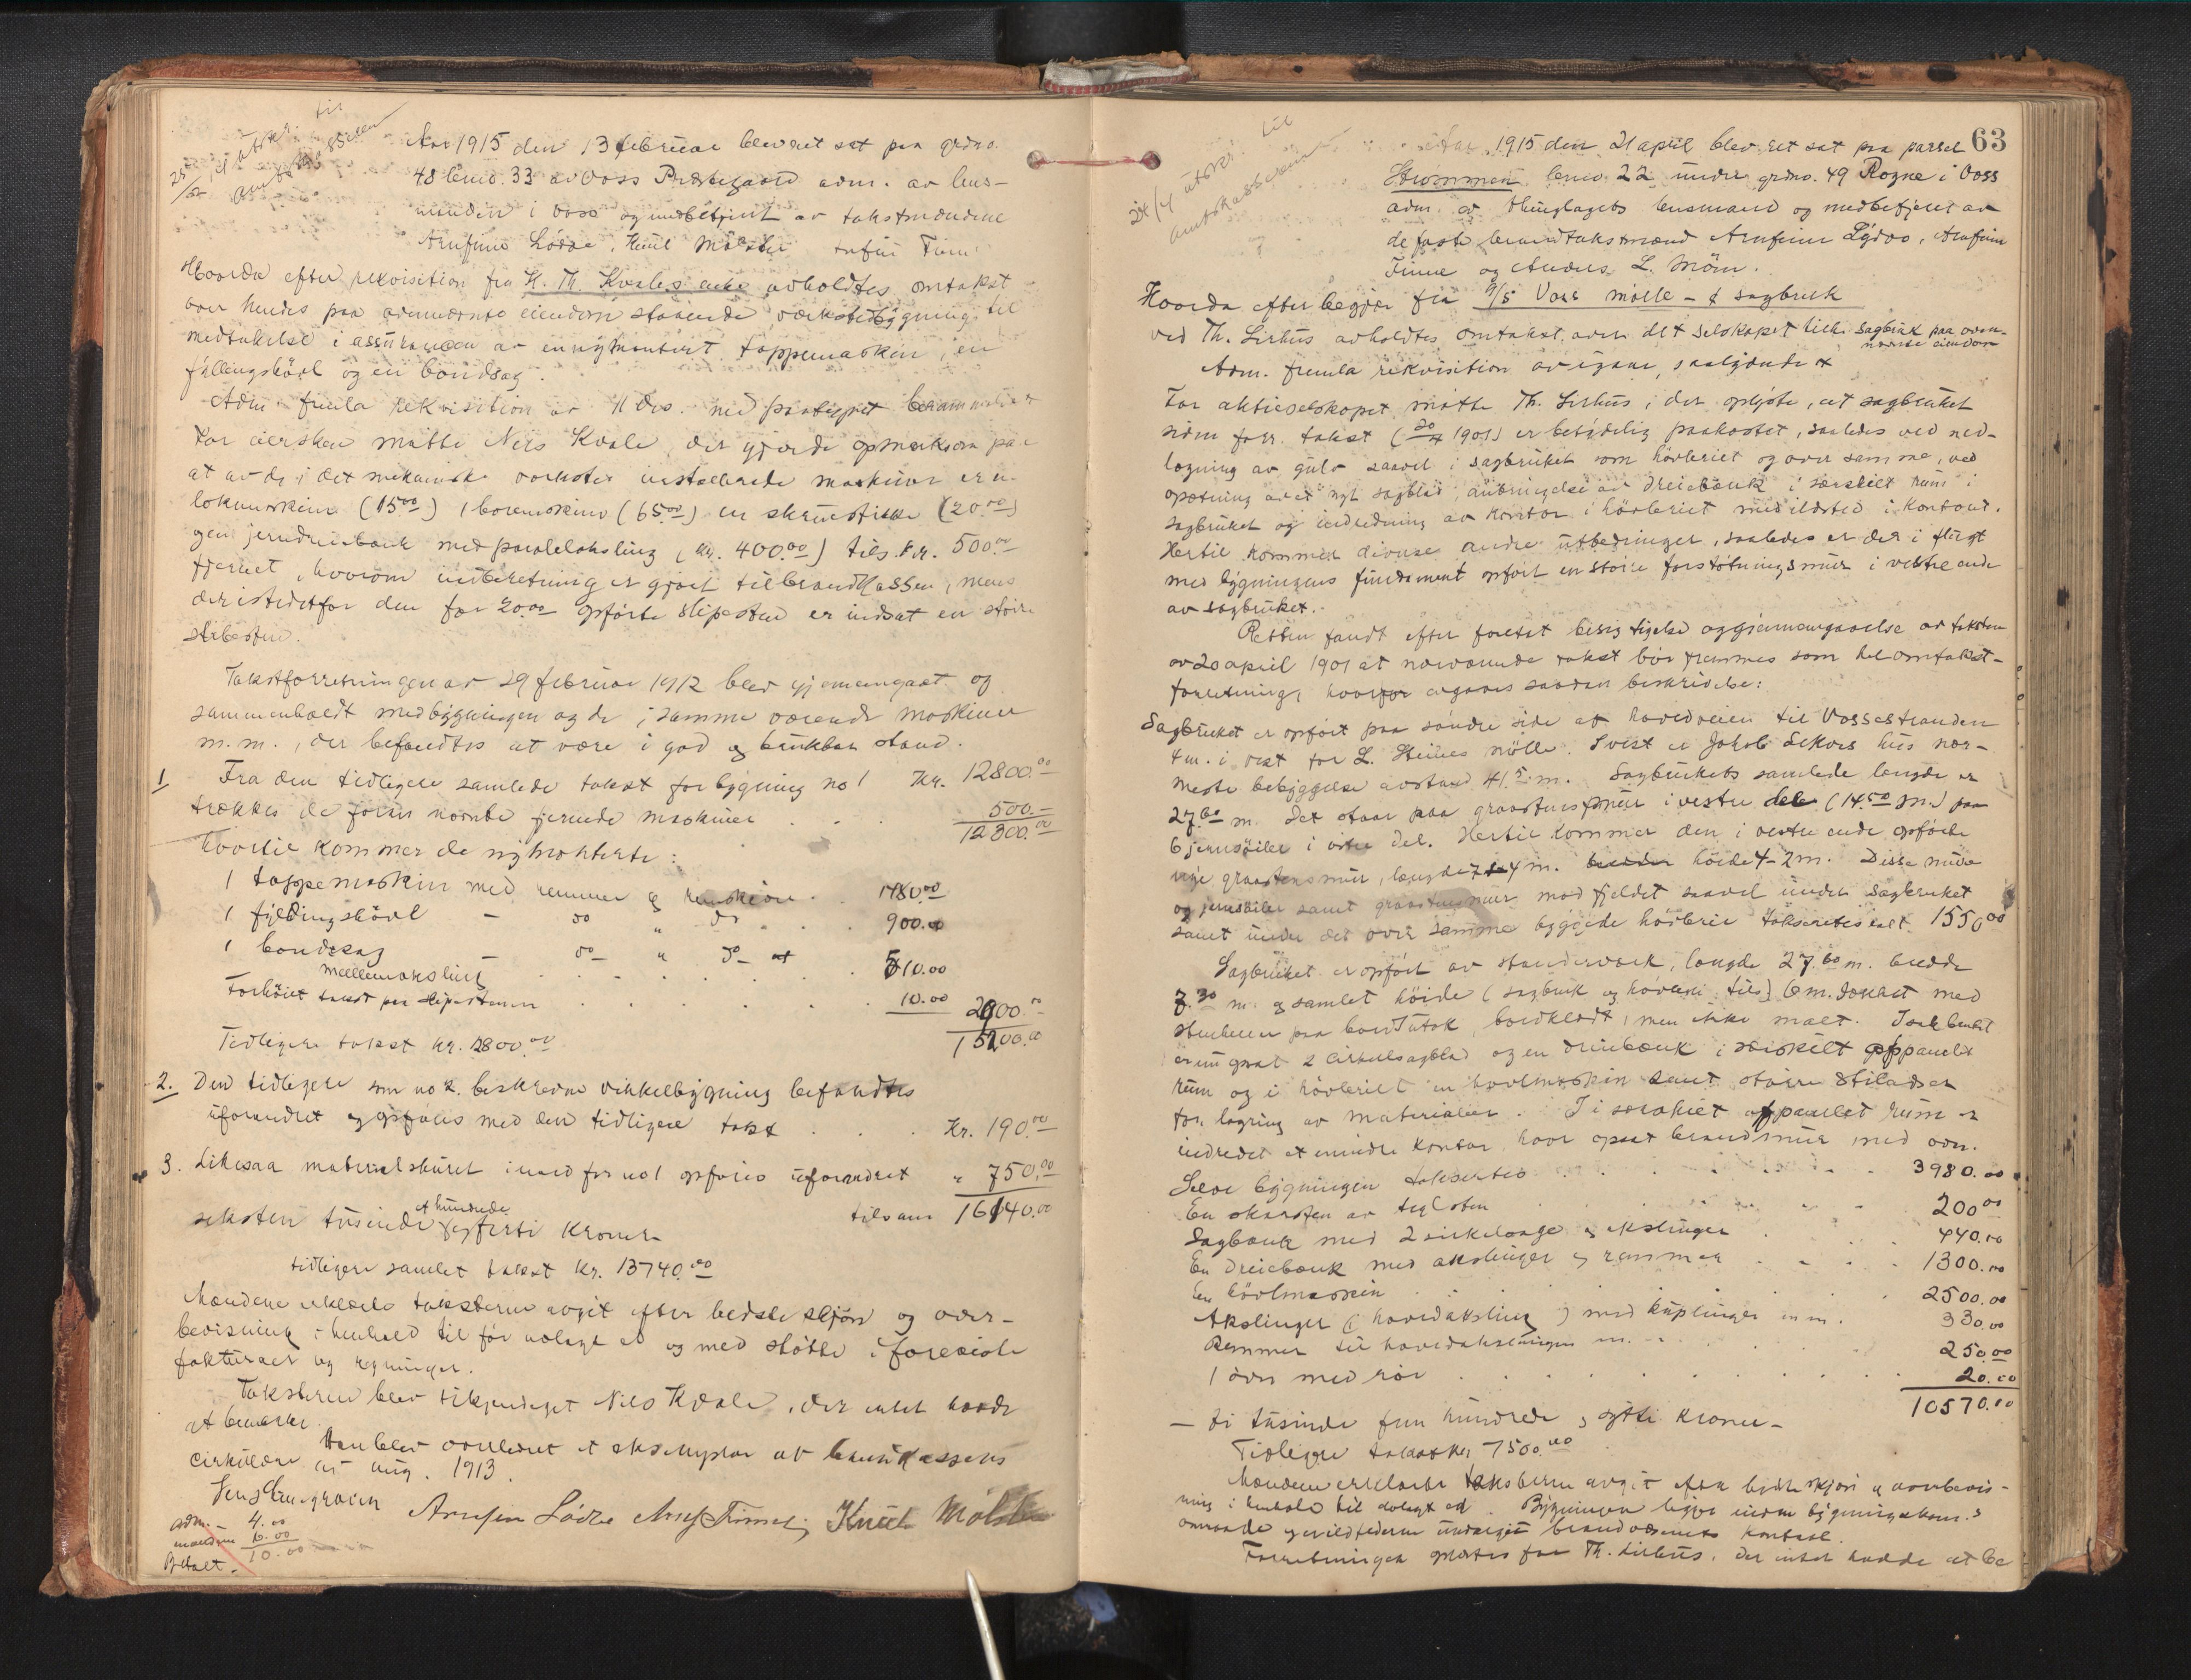 25/2 utskr. til
Aar 1915 den 13 februar blev ret sat paa grdno.
48 bno. 33 av Voss Prestegaard adm. av lens-
manden i Voss og medbetjent av takstmændene
Arnfinn Lödve, Knut Mölster Finne
Hvorda efter rekvisition fra N. Th. Kvales enke avholdtes omtakst
over hendes paa ovennævnte eiendom staaende verkstedbygning til
medtakelse i assurancen av en nymontert tappemaskin, en
fyllingshövl og en bandsag.
Adm. fremla rekvisition av 11 ds. med paategnet berammelse
For eiersken mötte Nils Kvale, der gjorde opmerksom paa
at av de i det mekaniske verksted installerede maskiner er en
lokmaskin (15.00) 1 boremaskin (65.00) en skruestikke (20.00)
og en jerndreiebænk med paralelaksling (kr. 400.00) tils. kr. 500.00
fjernet, hvorom indberetning er gjort til brandkassen, mens
der istedetfor den for 20.00 opförte slipesten er indsat en större
slibesten.
Takstforretningen av 29 februar 1912 blev gjennemgaat og
sammenholdt med bygningen og de i samme værende maskiner
m.m., der befandtes at være i god og brukbar stand.
1 Fra den tidligere samlede takst for bygning no 1 Kr. 12800.00
trækkes de foran nævnte fjernede maskiner . . . 500.-
12300.00
Hvortil kommer de nymonterte:
1 tappemaskin med remmer og remskiver . . 1480.00
1 fyldingshövl - do " do . . . 900.00
1 bandsag - do " do
mellemaksling . . . . . . 510.00
Forhöiet takst paa slipestenen . . . . . 10.00 2900.00
Tidligere takst kr. 12800.00 15200.00
2. Den tidligere som no 2 beskrevne vinkelbygning befandtes
uforandret og opföres med den tidligere takst . . . Kr. 190.00
3. Likesaa materialskuret i nord for no 1 opföres uforandret " 750.00
seksten tusinde et hundrede og forti Kroner - tilsam 16140.00
tidligere samlet takst kr. 13740.00
Mændene erklærte taksterne avgit efter bedste skjön og over-
bevisning i henhold til för avlagt ed og med stötte i foreviste
fakturaer og regninger.
Taksterne blev tilkjendegit Nils Kvale, der intet havde
at bemerke.
Han blev overleveret et eksemplar av brandkassens
cirkulære av aug. 1913.
Arnfinn Lödve Arnf Finne Knut Mölster
adm. - 4.00
mændene 6.00
10.00
Betalt.
63
24/4 utskr. til
amtskassereren
Aar 1915 den 21 april blev ret sat paa parsel
Strömmen bno. 22 under grdno. 49 Rogne i Voss
adm. av thinglagets lensmand og medbetjent av
de faste brandtakstmænd Arnfinn Lödve, Arnfinn
Finne og Anders L. Mön.
Hvorda efter begjær fra A/S Voss mölle- & sagbruk
ved Th. Lirhus avholdtes omtakst over det selskapet tilh. sagbruk paa oven-
nævnte eiendom
Adm. fremla rekvisition av igaar, saalydende
For aktieselskapet mötte Th. Lirhus, der oplyste, at sagbruket
siden forr. takst (20/4 1901) er betydelig paakostet, saaledes ved ned-
lægning av gulv saavel i sagbruket som hövleriet og over samme, ved
opsætning av et nyt sagblad, anbringelse av dreiebænk i særskilt rum i
sagbruket og indredning av kontor i hövleriet med ildsted i kontoret.
Hertil kommer diverse andre utbedringer, saaledes er der i flugt
med bygningens fundament opfört en större forstötningsmur i vestre ende
av sagbruket.
Retten fandt efter foretat besigtigelse og gjennemgaaelse av taksten
av 20 april 1901 at nærværende takst bör fremmes som hel omtakst-
forretning, hvorfor avgaves saadan beskrivelse:
Sagbruket er opfört paa söndre side av hovedveien til Vossestranden
4 m. i vest for L. Heines mölle. I vest er Jakob Lekves hus nær-
meste bebyggelse avstand 41.5 m. Sagbrukets samlede længde er
27.60 m. Det staar paa graastensmur i vestre del (14.50 m.) paa
6 jernsöiler i östre del. Hertil kommer den i vestre ende opförte
nye graastensmur, længde 7.4 m. höide 4-2 m. Disse mure
og jernsöiler samt graastensmur mod fjeldet saavel under sagbruket
samt under det over samme byggede hövleri takseres ialt 1550.00
Sagbruket er opfört av stenderverk, længde 27.60 m. bredde
7.30 m. og samlet höide (sagbruk og hövleri tils.) 6 m. tækket med
stenheller paa bordtak, bordklædt, men ikke malt. I sagbruket
er indsat 2 cirkelsagblad og en dreiebænk i særskilt oppanelt
rum og i hövleriet en hövlmaskin samt större stiladser
for lagring av materialier. I et særskilt oppanelet rum er
indredet et mindre kontor, hvor opsat brandmur med ovn.
Selve bygningen takseres . . . . . . . 3980.00
En skorsten av teglsten . . . . . 200.00
Sagbænk med 2 sirkelsage og akslinger . . . 440.00
En dreiebænk med akslinger og remmer . . . . 1300.00
En hövlmaskin . . . . . . . 2500.00
Akslinger (hovedaksling) med kuplinger m.m. . 330.00
Remmer til hovedakslingen m.m. . . . . 250.00
1 ovn med rör . . . . . . . 20.00
10570.00
- Ti tusinde fem hundrede og sytti kroner -
Tidligere takst kr. 7500.00
Mændene erklærte taksterne avgit efter bedste skjön og overbevis-
ning i henhold til avlagt ed. Bygningen ligger inden bygningskom.s
omraade og er ildstederne undergit brandvæsenets kontrol.
Forretningen oplæstes for Th. Lirhus, der intet hadde at be